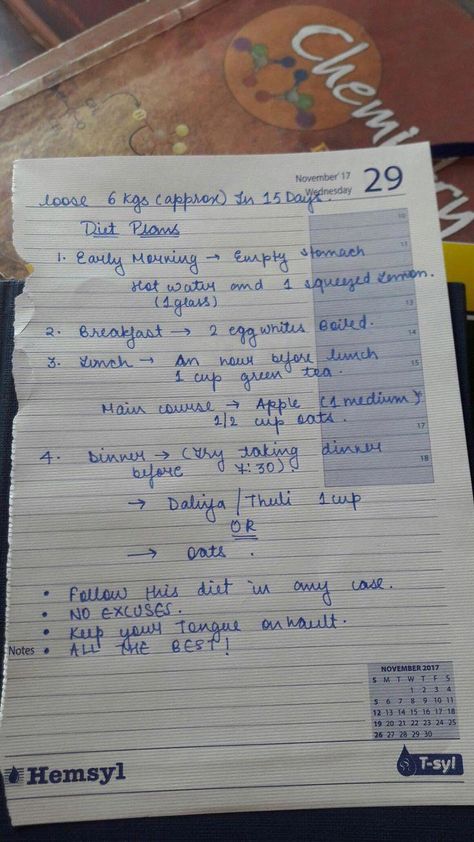 Chemistry
November'17
Wednesday 29
loose 6 kgs (approx) In 15 Days.
Diet Plans
1. Early Morning → Empty stomach
Hot water and 1 squeezed lemon.
(1 glass)
2. Breakfast → 2 egg whites Boiled.
3. Lunch → An hour before lunch
1 cup green tea.
Main course → Apple (1 medium)
1/2 cup oats.
4. Dinner → (Try taking dinner
before 7:30).
→ Daliya / Thuli 1 cup
OR
→ oats.
• Follow this diet in any case.
• NO EXCUSES.
• Keep your Tongue on hault.
Notes • ALL THE BEST!
10
11
13
14
15
17
18
NOVEMBER 2017
S M T W T F S
1 2 3 4
5 6 7 8 9 10 11
12 13 14 15 16 17 18
19 20 21 22 23 24 25
26 27 28 29 30
Hemsyl
T-syl